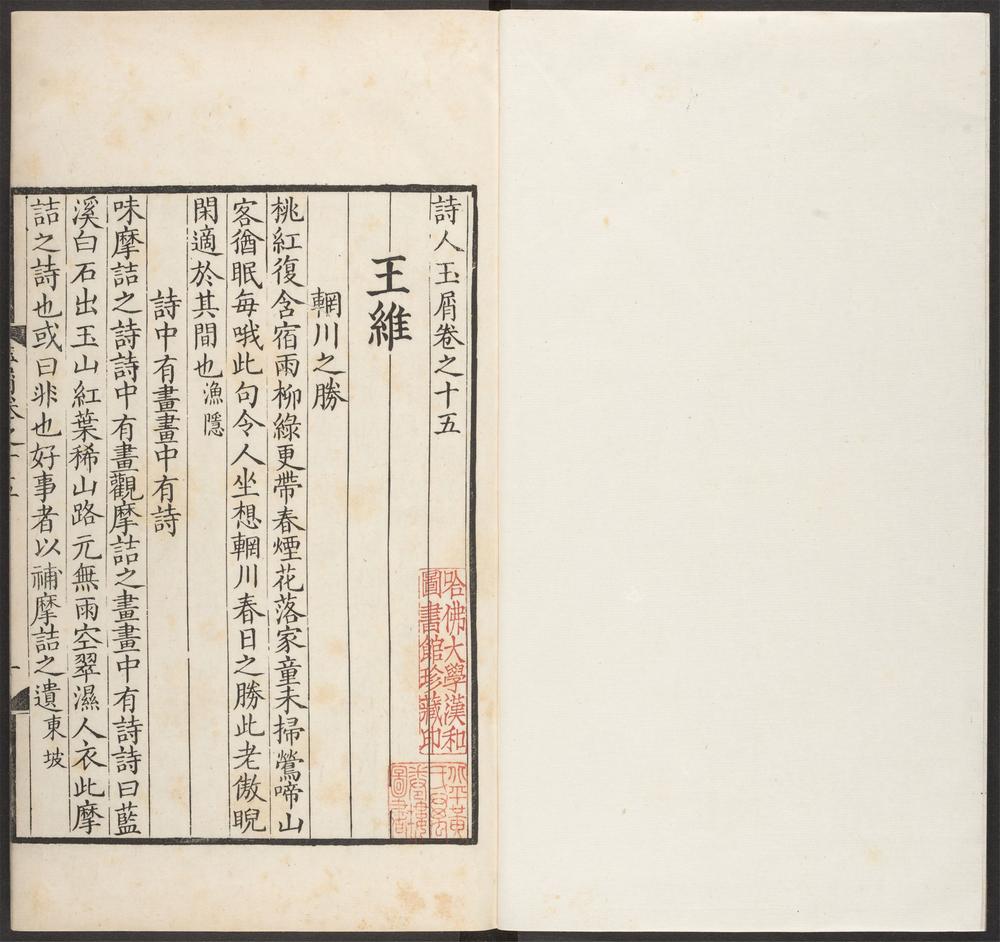 詩人玉屑卷之十五
王維
輞川之勝
桃紅復含宿雨柳綠更帶春煙花落家童未掃鶯啼山
客猶眠每哦此句令人坐想輞川春日之勝此老傲睨
閑適於其間也漁隱
詩中有畫畫中有詩
味摩詰之詩詩中有畫觀摩詰之畫畫中有詩詩曰藍
溪白石出玉山紅葉稀山路元無雨空翠濕人衣此摩
詰之詩也或曰非也好事者以補摩詰之遺東坡
哈佛大學漢和
圖書館珍藏印